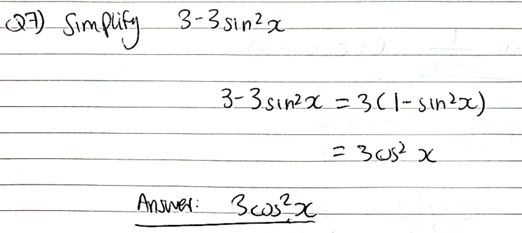 Q7) Simplify 3-3sin²x
3-3sin²x = 3(1-sin²x)
= 3cos² x
Answer: 3cos²x